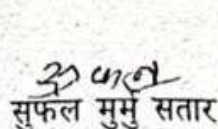 सुफल मुर्मु सतार